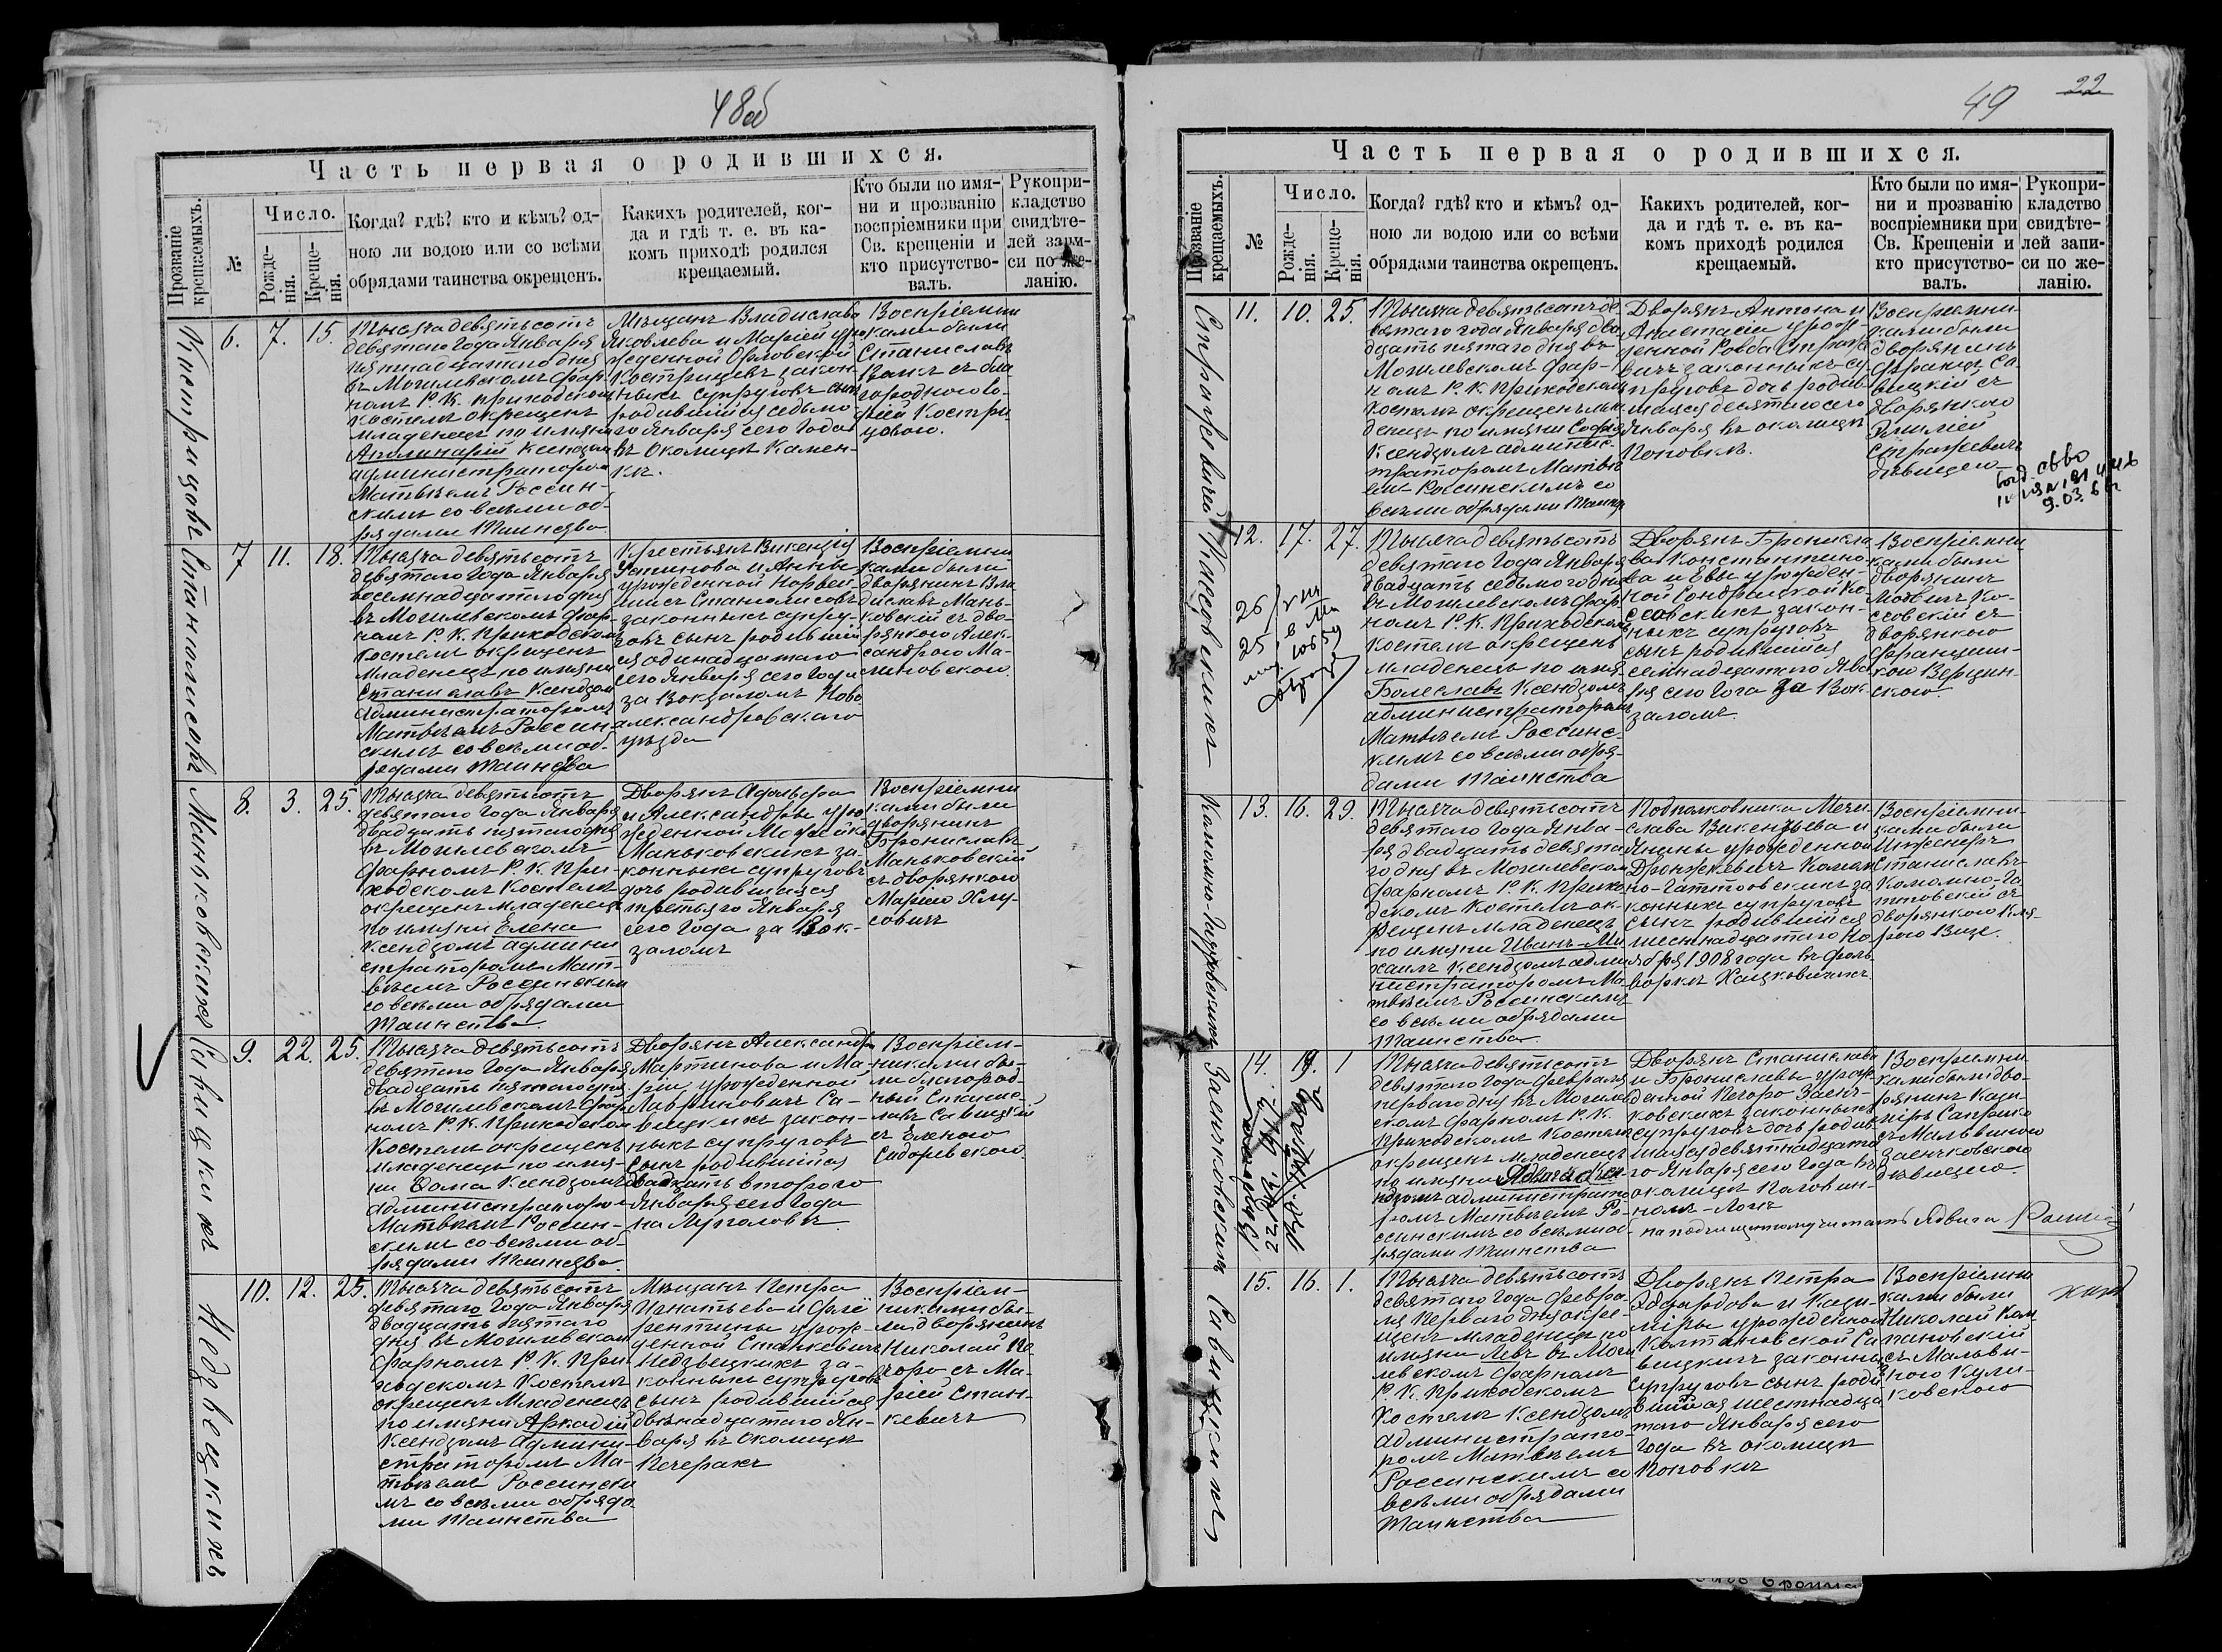 48об
Часть первая о родившихся.
Прозваніе крещаемыхъ.
№
Число.
Рожде-
нія.
Креще-
нія.
Когда? гдѣ? кто и кѣмъ? од-
ною ли водою или со всѣми
обрядами таинства окрещенъ.
Какихъ родителей, ког-
да и гдѣ т. е. въ ка-
комъ приходѣ родился
крещаемый.
Кто были по имя-
ни и прозванію
воспріемники при
Св. крещеніи и
кто присутство-
валъ.
Рукопри-
кладство
свидѣте-
лей запи-
си по же-
ланію.
6. 7. 15.
Тысяча девятьсотъ
девятаго Года Января
пятнадцатаго дня
въ Могилевскомъ фар-
номъ Р. К. приходскомъ
костелѣ окрещенъ
младенецъ по имяни
Аполинарій Ксендзом
администраторомъ
Матвѣемъ Россин-
скимъ со всѣми об-
рядами Таинства
Мѣщанъ Владислава
Яковлева и Маріей уро
жденной Орловской
Кострицевъ закон-
ныхъ супруговъ сынъ
родившійся седьмо
го Января сего Года
въ Околицѣ Камен-
кѣ.
Воспріемни
ками были
Станиславъ
съ бла-
городною Со-
фіей Костри
цовою.
7 11. 18.
Тысяча девятьсотъ
девятаго Года Января
восемнадцатаго дня
въ Могилевскомъ фар-
номъ Р. К. Приходскомъ
костелѣ окрещенъ
Младенецъ по имяни
Станиславъ Ксендзом
Администраторомъ
Матвѣемъ Россин-
скимъ со всѣми об-
рядами Таинства
Крестьянъ Викентія
и Анны
урожденной
Станюлисовъ
законныхъ супру-
говъ сынъ родившій
ся одинадцатаго
сего Января сего Года
за Вокзаломъ Ново
александровскаго
уѣзда
Воспріемни-
ками были
дворянинъ Вла
диславъ Мань-
ковскій съ дво-
рянкою Алек-
сандрою Ма-
линовскою.
8. 3. 25.
Тысяча девятьсотъ
девятаго Года Января
двадцать пятаго дня
въ Могилевскомъ
фарномъ Р. К. При-
ходскомъ Костелѣ
окрещенъ младенецъ
по имяни Елена
Ксендзомъ админи
страторомъ Мат-
вѣемъ Россинским
со всѣми обрядами
Таинства.
Дворянъ Адольфа
и Александры уро
жденной Можейко
Маньковскихъ за-
конныхъ супруговъ
дочь родившаяся
третьяго Января
сего Года за Вок-
заломъ
Воспріемни
ками были
дворянинъ
Брониславъ
Маньковскій
съ дворянкою
Маріею Хлу-
совичъ
9. 22. 25.
Тысяча девятьсотъ
девятаго Года Января
двадцать пятаго дня
въ Могилевскомъ фар
номъ Р. К. Приходском
Костелѣ окрещенъ
младенецъ по имя-
ни Фома Ксендзомъ
администраторо
Матвѣемъ Россин-
скимъ со всѣми об-
рядами Таинства.
Дворянъ Александр
Мартинова и Ма-
ріи урожденной
Лавриновичъ Са-
вицкихъ закон-
ныхъ супруговъ
сынъ родившійся
двадцать второго
Января сего Года
на Луполовѣ
Воспріем-
никами бы-
ли благород-
ный Станис-
лавъ Савицкій
съ Еленою
Сидоревскою.
10. 12. 25.
Тысяча девятьсотъ
девятаго Года Января
двадцать пятаго
дня въ Могилевском
фарномъ Р. К. При
ходскомъ Костелѣ
окрещенъ Младенецъ
по имяни Аркадій
Ксендзомъ Админи-
страторомъ Ма-
твѣемъ Россински
мъ со всѣми обряда
ми Таинства
Мѣщанъ Петра
Игнатьева и Фло
рентины урож-
денной Станкевичъ
Недзвецкихъ за-
конныхъ супруговъ
сынъ родившійся
двѣнадцатаго Ян-
варя въ Околицѣ
Печерахъ
Воспріем-
никами бы-
ли дворянинъ
Николай Пе
чоро съ Ма-
ріей Стан-
кевичъ
Кострицовъ
Станюлисовъ
Маньковскихъ
Савицкихъ
Недзвецкихъ
49
22
Часть первая о родившихся.
Прозваніе крещаемыхъ.
№
Число.
Рожде-
нія.
Креще-
нія.
Когда? гдѣ? кто и кѣмъ? од-
ною ли водою или со всѣми
обрядами таинства окрещенъ.
Какихъ родителей, ког-
да и гдѣ т. е. въ ка-
комъ приходѣ родился
крещаемый.
Кто были по имя-
ни и прозванію
воспріемники при
Св. Крещеніи и
кто присутство-
валъ.
Рукопри-
кладство
свидѣте-
лей запи-
си по же-
ланію.
11. 10. 25.
Тысяча девятьсотъ де
вятаго года Января два
дцать пятаго дня въ
Могилевскомъ фар-
номъ Р. К. Приходском
Костелѣ окрещенъ мла
денецъ по имяни Софія
Ксендзомъ админис-
траторомъ Матвѣ
емъ Россинскимъ со
всѣми обрядами Таин
Дворянъ Антона и
Анастасіи урож
денной Ровба Страже
вичъ законныхъ су-
пруговъ дочь родив
шаяся десятаго сего
Января въ околицѣ
Поповкѣ.
Воспріемни-
ками были
дворянинъ
Францъ Са-
вицкій съ
дворянкою
Эмиліей
Стражевичъ
дѣвицею
12. 17. 27.
Тысяча девятьсотъ
девятаго Года Января
двадцать седьмого дня
въ Могилевскомъ фар
номъ Р. К. Приходскомъ
Костелѣ окрещенъ
младенецъ по имя
Болеславъ Ксендзомъ
администраторомъ
Матвѣемъ Россинс-
кимъ со всѣми обря-
дами Таинства
Дворянъ Бронисла
ва Константино-
ва и Евы урожден-
ной Ко
ссовскихъ закон-
ныхъ супруговъ
сынъ родившійся
семнадцатаго Янва
ря сего Года за Вок-
заломъ.
Воспріемни
ками были
дворянинъ
Ко-
ссовскій съ
дворянкою
Францииш-
кою Верцин-
скою.
13. 16. 29.
Тысяча девятьсотъ
девятаго Года Янва-
ря двадцать девята
го дня въ Могилевском
фарномъ Р. К. Прихо
дскомъ Костелѣ ок-
рещенъ младенецъ
по имяни Иванъ-Ми
хаилъ Ксендзомъ адми
нистраторомъ Ма-
твѣемъ Россинскимъ
со всѣми обрядами
Таинства
Подполковника Мечи-
слава Викентьева и
Янины урожденной
Дронжкевичъ Комом
но-Гаттовскихъ за
конныхъ супруговъ
сынъ родившійся
шестнадцатаго Но
ября 1908 года въ фоль
варкѣ Хацковичахъ
Воспріемни-
ками были
Инженеръ
Станиславъ
Комомно-Га-
ттовскій съ
дворянкою
14. 19. 1
Тысяча девятьсотъ
девятаго Года Февраля
перваго дня въ Могилев
скомъ фарномъ Р. К.
Приходскомъ Костелѣ
окрещенъ младенецъ
по имяни Ядвига Ксе-
ндзомъ администрато
ромъ Матвѣемъ Ро-
ссинскимъ со всѣми об-
рядами Таинства
Дворянъ Станислава
и Брониславы урож
денной Печоро Заенч-
ковскихъ законныхъ
супруговъ дочь родив
шаяся девятнадцата
го Января сего Года въ
околицѣ
Воспріемни
ками были дво-
рянинъ Кази
міръ
съ Мальвиною
Заенчковскою
дѣвицею.
на подчищенному читать Ядвига
15. 16. 1.
Тысяча девятьсотъ
девятаго Года Февра-
ля перваго дня окре-
щенъ младенецъ по
имяни Левъ въ Моги
левскомъ фарномъ
Р. К. Приходскомъ
Костелѣ Ксендзомъ
администрато-
ромъ Матвѣемъ
Россинскимъ со
всѣми обрядами
Таинства
Дворянъ Петра
Эдуардова и Кази-
міры урожденной
Колтановской Са
вицкихъ законныхъ
супруговъ сынъ роди-
вшійся шестнадца
таго Января сего
Года въ околицѣ
Поповкѣ
Воспріемни
ками были
Николай Кол
тановскій
съ Мальви-
ною Кули-
ковскою
Стражевичей
Коссовскихъ
Заенчковскихъ
Савицкихъ